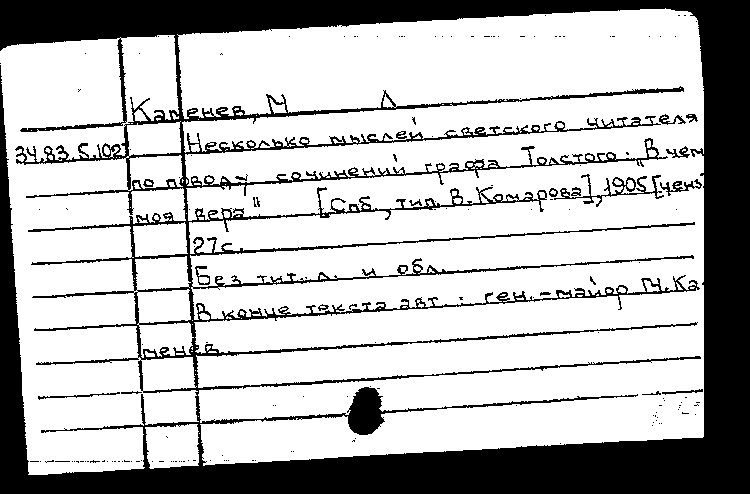 Каменев, М Л
34.83.5.102 Несколько мыслей светского читателя
по поводу сочинений графа Толстого: „В чем
моя вера" [Спб, тип. В. Комарова], 1905 [ценз
27с.
Без тит. л. и обл.
В конце текста авт: ген.-майор М. Ка-
менев.